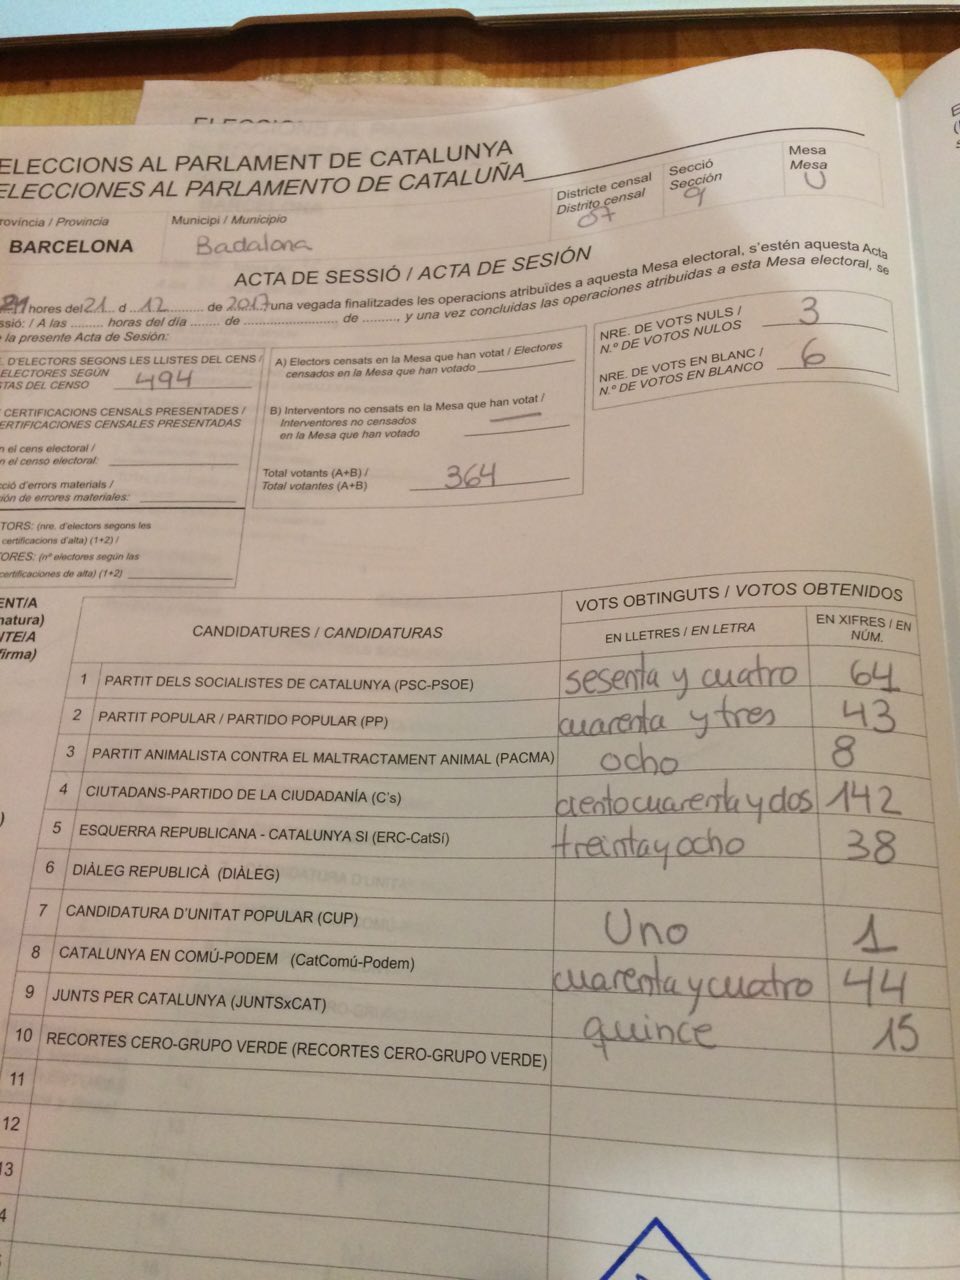 ELECCIONS AL PARLAMENT DE CATALUNYA
ELECCIONES AL PARLAMENTO DE CATALUÑA
Districte censal
Distrito censal
07
Secció
Sección
9
Mesa
Mesa
U
rovíncia / Provincia
BARCELONA
Municipi / Municipio
Badalona
ACTA DE SESSIÓ / ACTA DE SESIÓN
21 hores del 21 d 12 de 2017 una vegada finalitzades les operacions atribuïdes a aquesta Mesa electoral, s'estén aquesta Acta
ssió: / A las ......... horas del día ....... de ....................... de ........., y una vez concluidas las operaciones atribuidas a esta Mesa electoral, se
e la presente Acta de Sesión:
. D'ELECTORS SEGONS LES LLISTES DEL CENS /
ELECTORES SEGÚN
TAS DEL CENSO 494
CERTIFICACIONS CENSALS PRESENTADES /
ERTIFICACIONES CENSALES PRESENTADAS
n el cens electoral /
n el censo electoral:
ció d'errors materials /
ión de errores materiales:
TORS: (nre. d'electors segons les
certificacions d'alta) (1+2) /
ORES: (nº electores según las
certificaciones de alta) (1+2)
A) Electors censats en la Mesa que han votat / Electores
censados en la Mesa que han votado
B) Interventors no censats en la Mesa que han votat /
Interventores no censados
en la Mesa que han votado
Total votants (A+B) /
Total votantes (A+B) 364
NRE. DE VOTS NULS /
N.º DE VOTOS NULOS 3
NRE. DE VOTS EN BLANC /
N.º DE VOTOS EN BLANCO 6
ENT/A
natura)
NTE/A
firma)
CANDIDATURES / CANDIDATURAS
VOTS OBTINGUTS / VOTOS OBTENIDOS
EN LLETRES / EN LETRA
EN XIFRES / EN
NÚM.
1 PARTIT DELS SOCIALISTES DE CATALUNYA (PSC-PSOE) sesenta y cuatro 64
2 PARTIT POPULAR / PARTIDO POPULAR (PP) cuarenta y tres 43
3 PARTIT ANIMALISTA CONTRA EL MALTRACTAMENT ANIMAL (PACMA) ocho 8
4 CIUTADANS-PARTIDO DE LA CIUDADANÍA (C's) ciento cuarenta y dos 142
5 ESQUERRA REPUBLICANA - CATALUNYA SI (ERC-CatSí) treinta y ocho 38
6 DIÀLEG REPUBLICÀ (DIÀLEG)
7 CANDIDATURA D'UNITAT POPULAR (CUP) Uno 1
8 CATALUNYA EN COMÚ-PODEM (CatComú-Podem) cuarenta y cuatro 44
9 JUNTS PER CATALUNYA (JUNTSxCAT) quince 15
10 RECORTES CERO-GRUPO VERDE (RECORTES CERO-GRUPO VERDE)
11
12
13
4